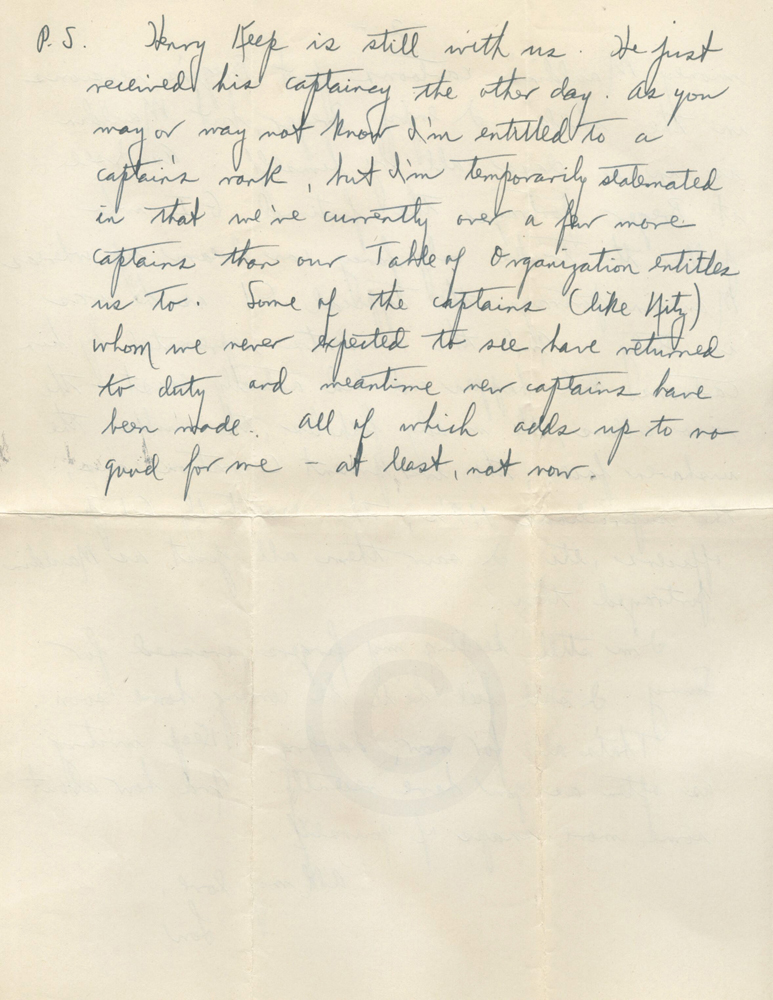 P.S. Henry Keep is still with us. He just
received his captaincy the other day. As you
may or may not know I'm entitled to a
captain's rank, but I'm temporarily stalemated
in that we've currently over a few more
captains than our Table of Organization entitles
us to. Some of the captains (like Hitz)
whom we never expected to see have returned
to duty and meantime new captains have
been made. All of which adds up to no
good for me – at least, not now.